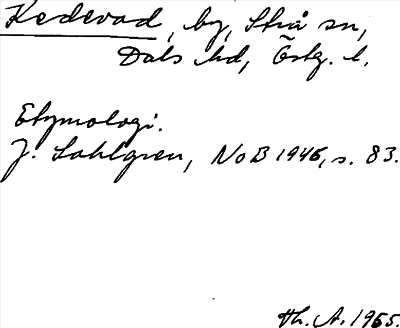 Kedevad, by, Strå sn,
Dals hd, Östg. l.
Etymologi.
J. Sahlgren, NoB 1946, s. 83.
Th. A. 1965.